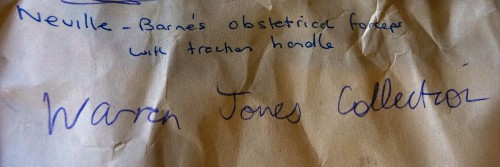 Neville - Barnes obstetrical forceps
with traction handle
Warren Jones Collection